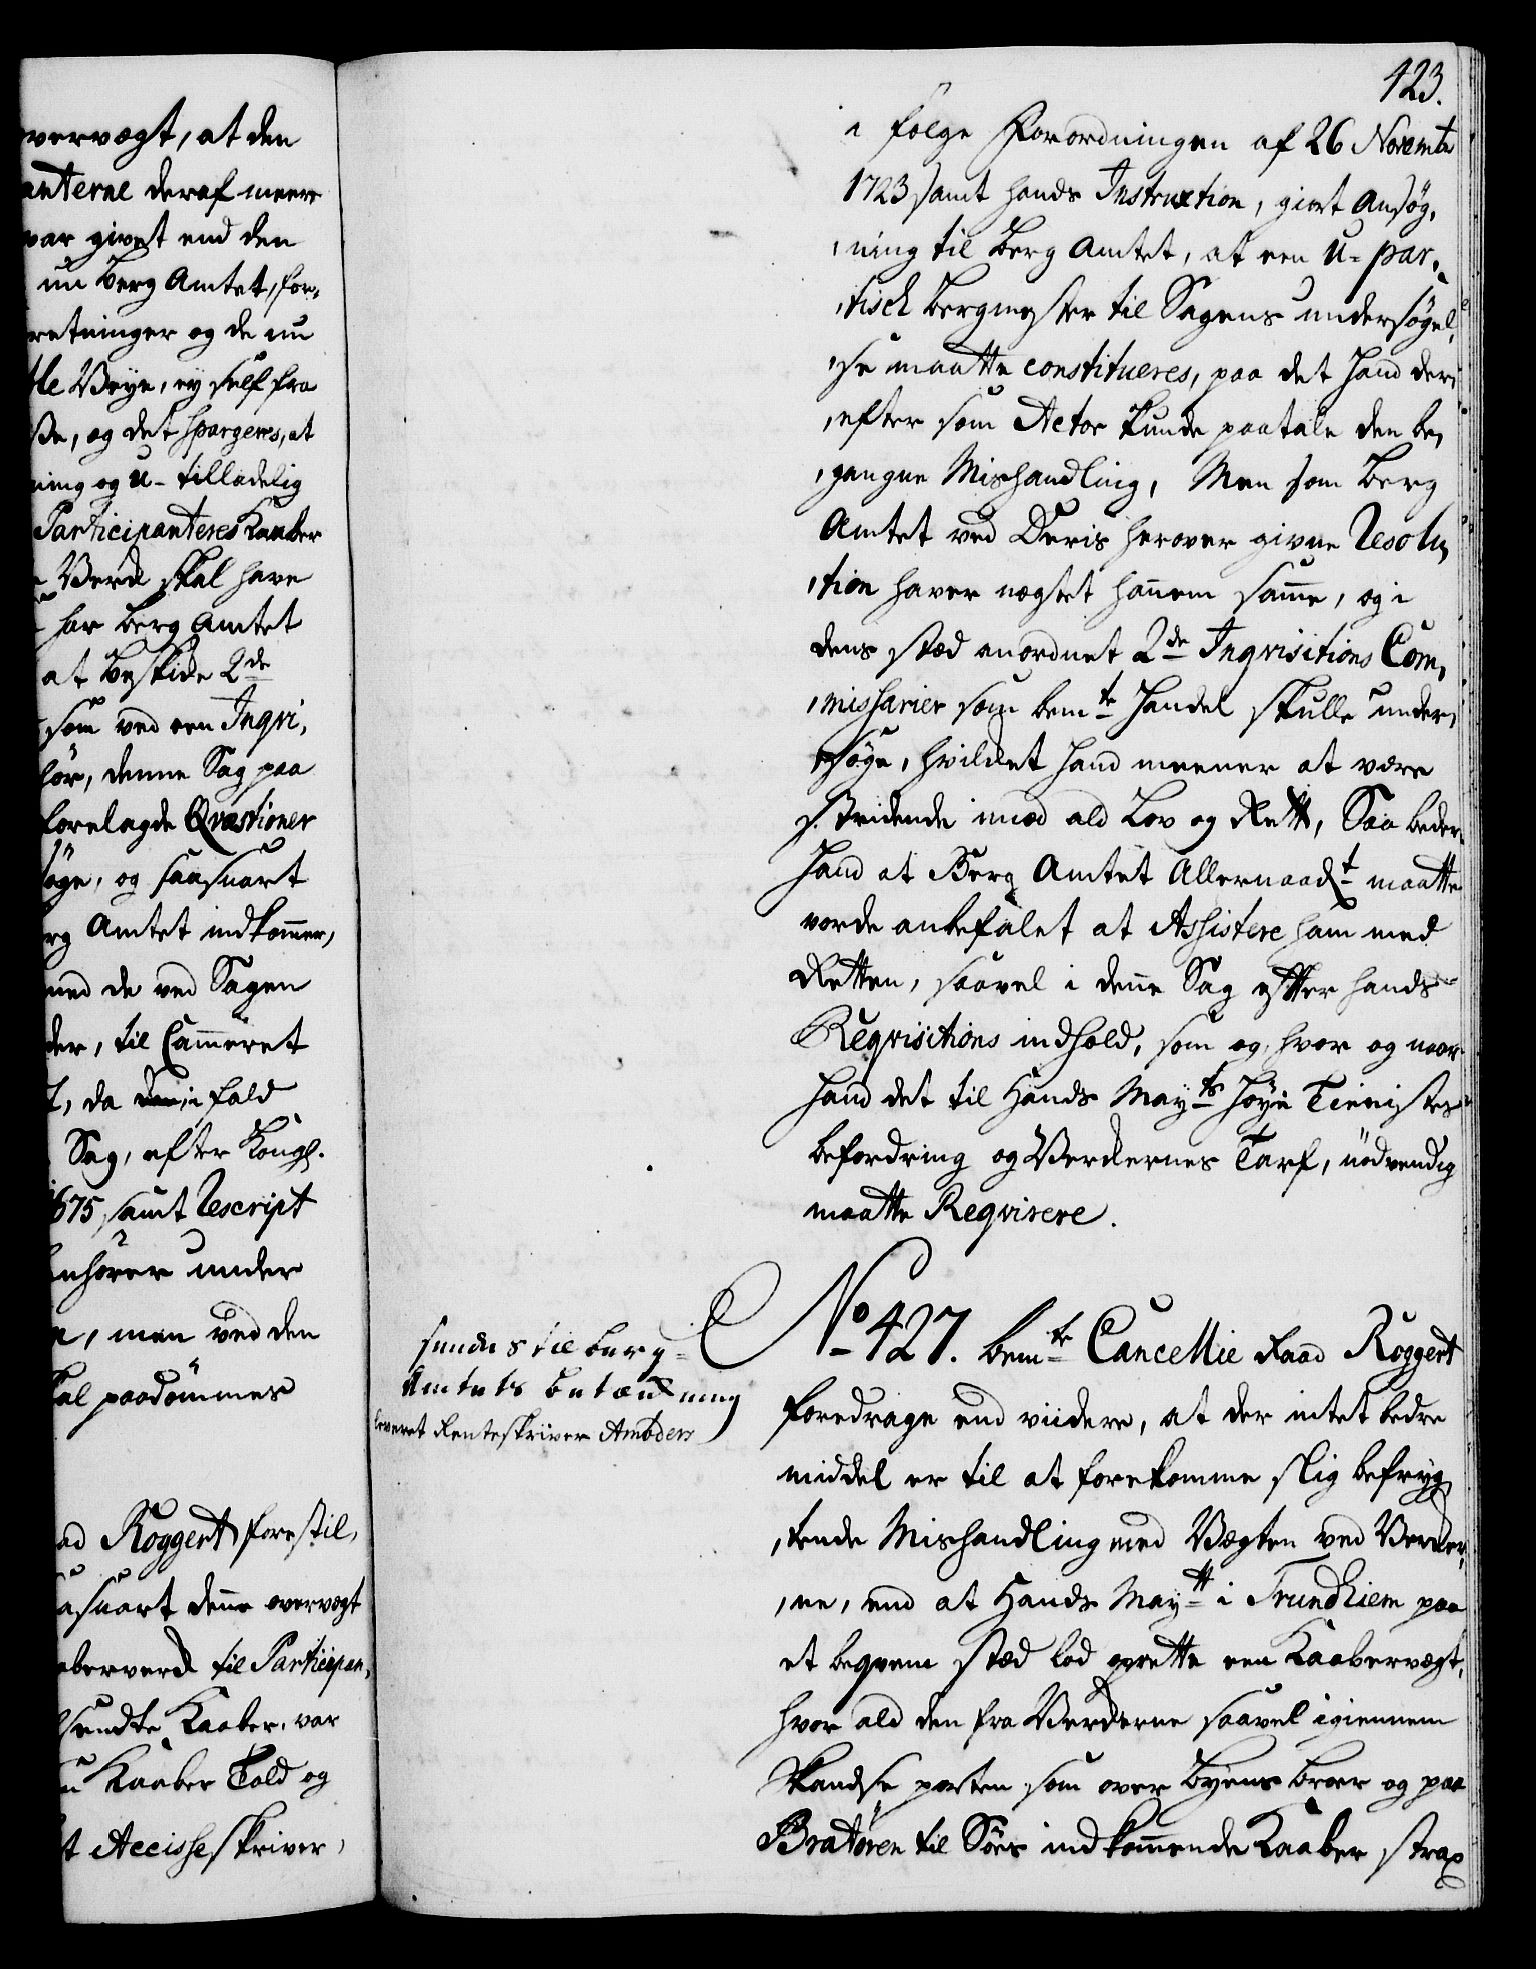 vervægt, at den
anterne deraf meere
var givet end den
nu Berg Amtet, for,
retninger og de nu
Veye, ey self fra
og det spargeres, at
ning og U-tilladelig
Participanteres Kaaber
Verk skal have
har Berg Amtet
at beskike 2de
som ved een Inqvi,
hör, denne Sag paa
forelagde Qvæstioner
söge, og saasnart
rg Amtet indkommer,
med de ved Sagen
der, til Cammeret
t, da i fald
Sag, efter Kongl.
1675, samt Rescript
henhörer under
men ved den
skal paadömmes
ad Roggert forestil,
asnart denne overvægt
berverk til Participan,
sendte Kaaber, var
Kaaber Told og
t Accisseskriver,
423.
i følge Forordningen af 26 Novembr
1723 samt hands Instruction, giort Ansøg,
,ning til Berg Amtet, at een U-par,
,tisk Bergmester til Sagens undersøgel,
,se maatte constitueres, paa det Hand der,
,efter som Actor kunde paatale den be,
,gangne Mishandling, Men som Berg
Amtet ved Deris herover givne Resolu,
,tion haver nægtet hannem samme, og i
dens stæd anordnet 2de Inqvisitions Com,
,missarier som bemte Handel skulle under,
,søge, hvilcket hand meener at være
stridende imod ald Lov og Rett, Saa beder
Hand at Berg Amtet Allernaadt maatte
vorde anbefalet at Assistere ham med
Retten, saavel i denne Sag efter hands
Reqvisitions indhold, som og hvor og naar
Hand det til Hands Mayts Høye Tienistes
befordring og Verckernes Tarf, nödvendig
maatte Reqvirere.
sendes til Berg=
Amtets Betænkning
leveret Renteskriver Amböers
No 427. bemte Cancellie Raad Roggert
foredrager end viidere, at der intet bedre
middel er til at forekomme slig befryg,
,tende Mishandling med Vægten ved Vercker,
,ne, end at Hands Maytt i Trundhiem paa
et beqvem stæd lod oprette een Kaabervægt,
hvor ald den fra Verckerne saavel igiennem
Skandse porten som over Byens Broer og paa
Bratören til Söes indkommende Kaaber strax